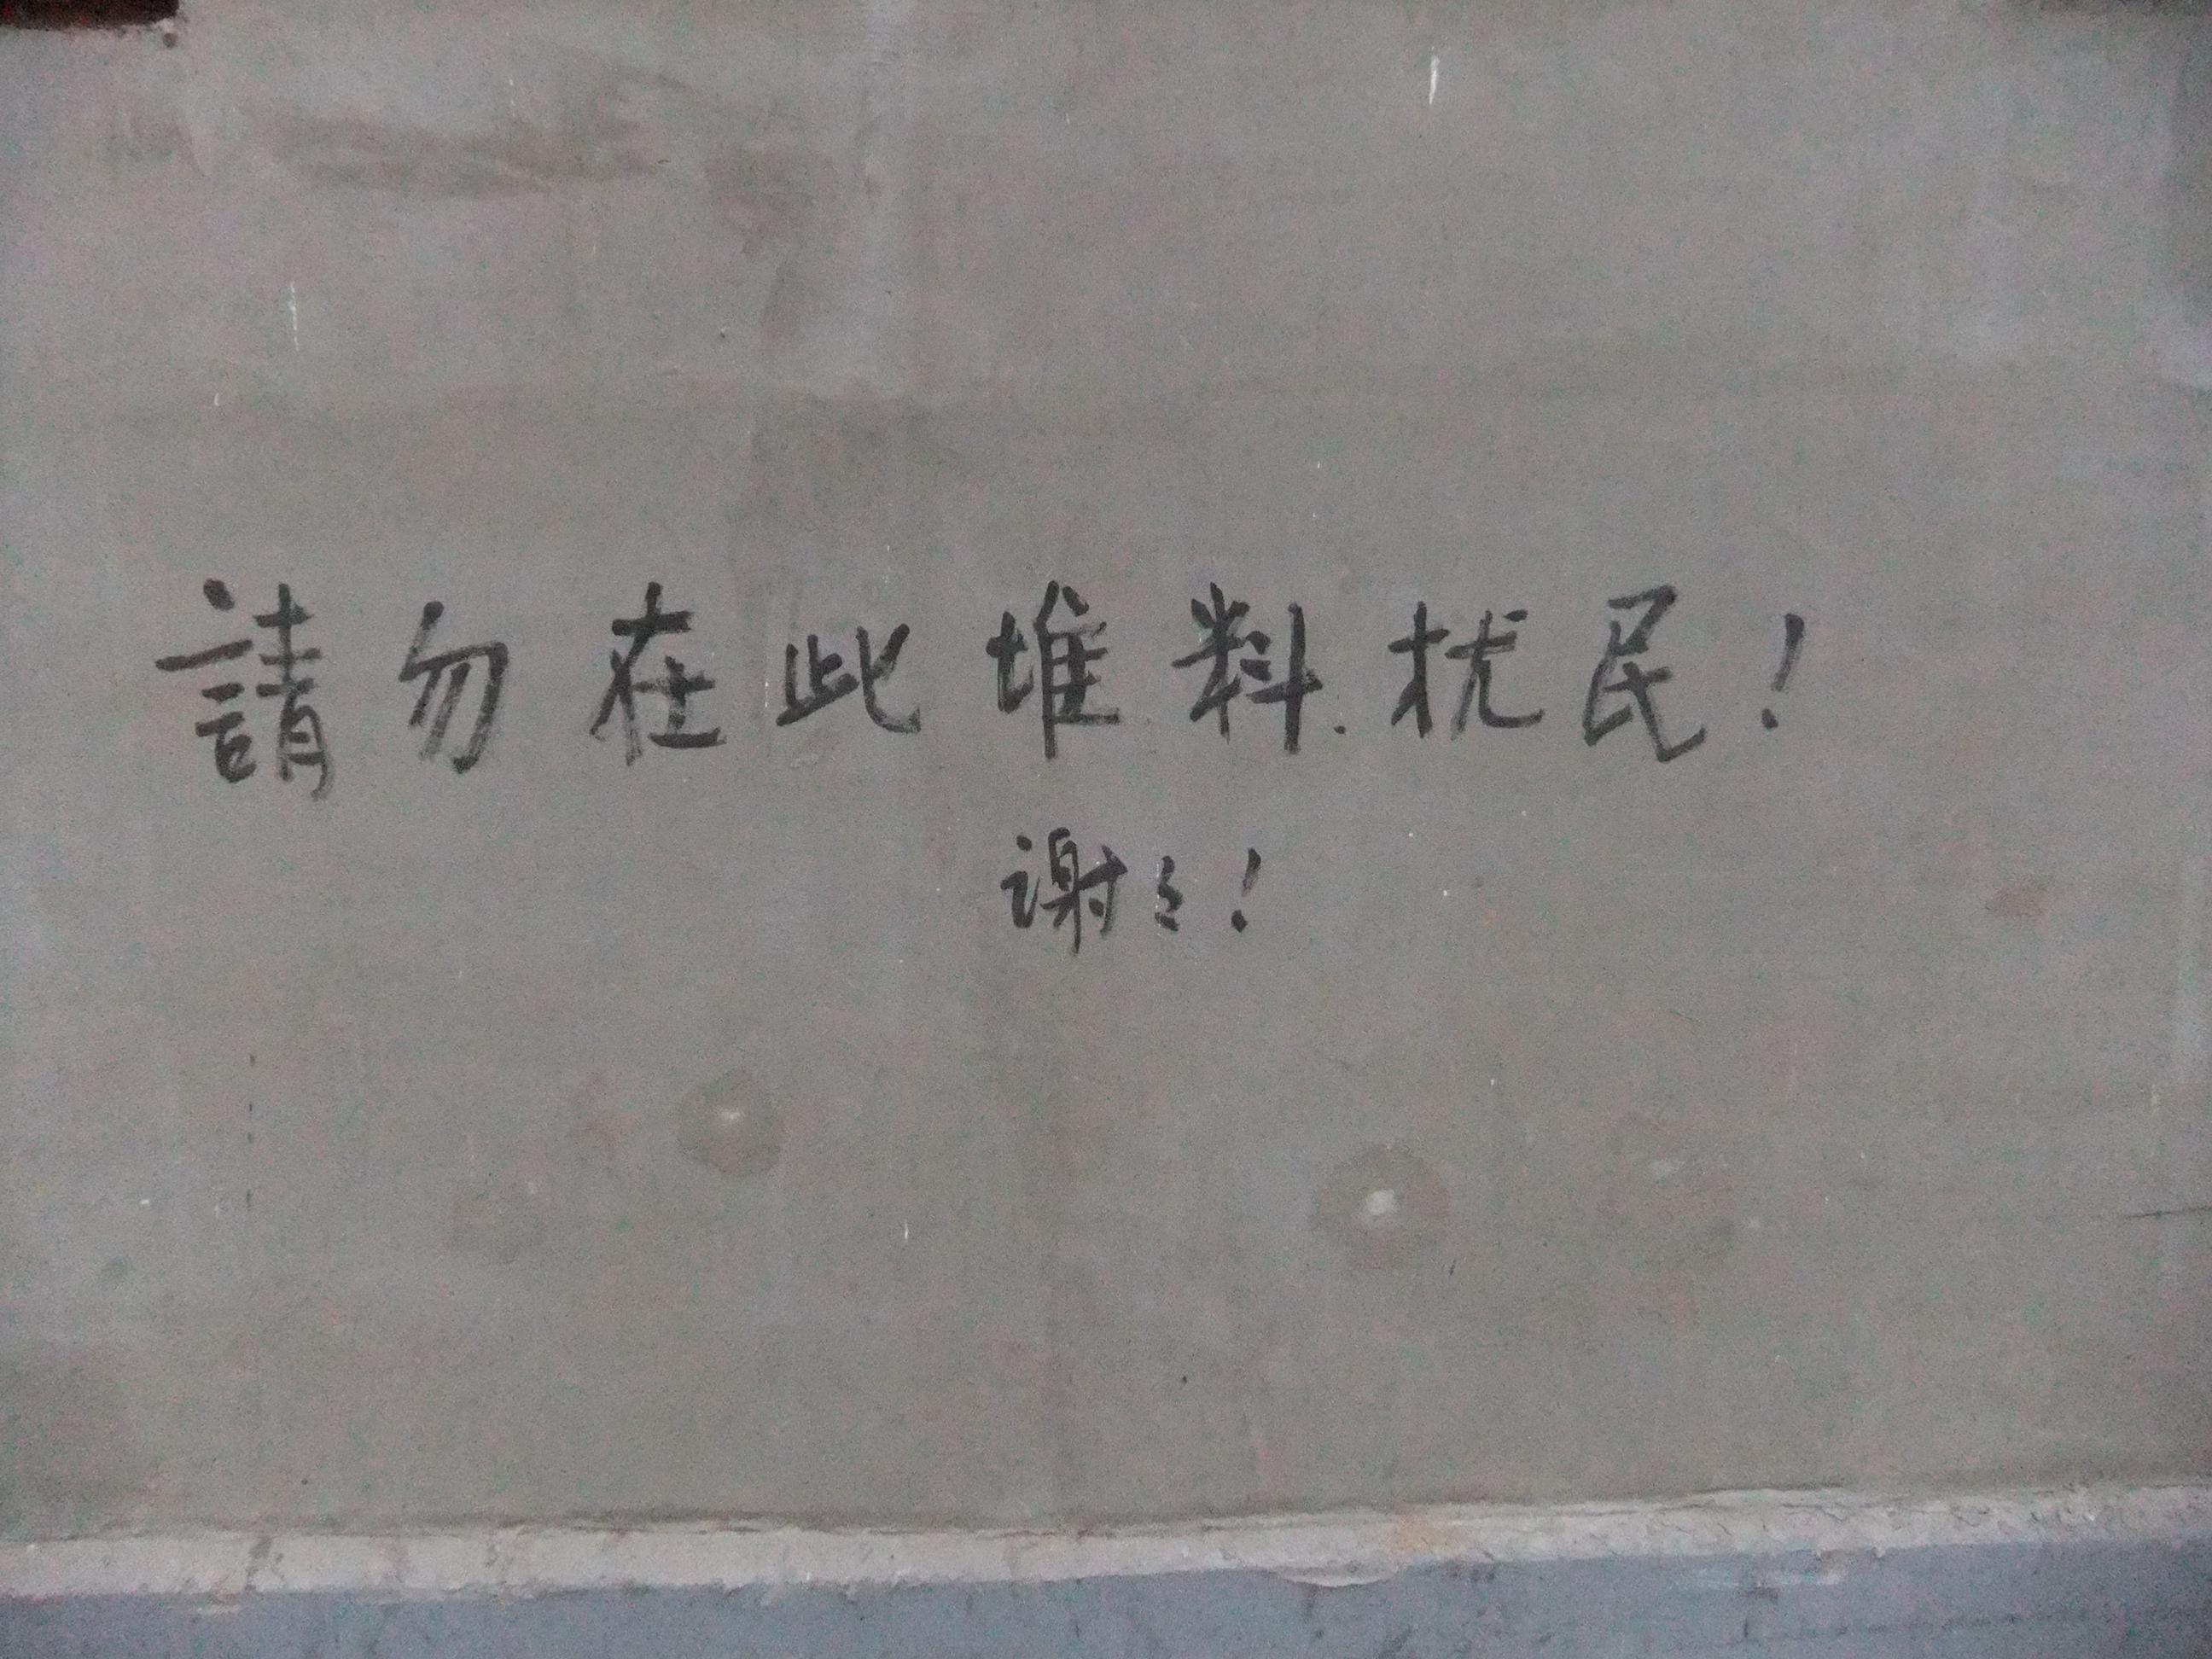 請勿在此堆料.扰民!
谢々!